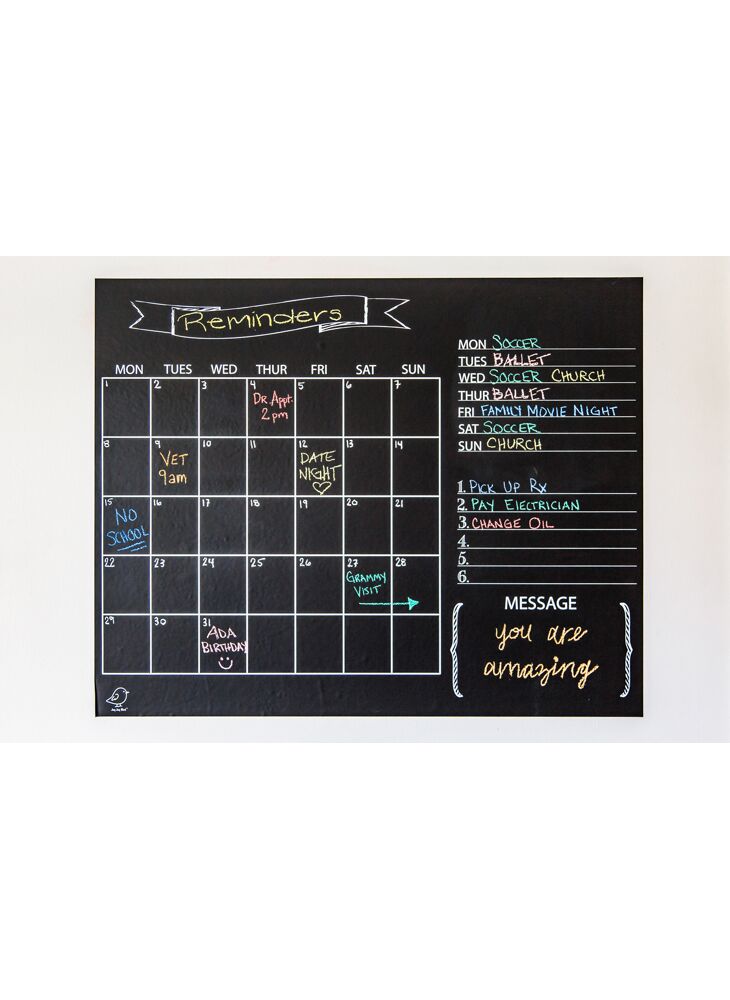 Reminders
MON TUES WED THUR FRI SAT SUN
1 2 3 4 5 6 7
Dr. Appt.
2pm
8 9 10 11 12 13 14
VET
9am
DATE
NIGHT
15 16 17 18 19 20 21
NO
SCHOOL
22 23 24 25 26 27 28
GRAMMY
VISIT
29 30 31
ADA
BIRTHDAY
MON SOCCER
TUES BALLET
WED SOCCER CHURCH
THUR BALLET
FRI FAMILY MOVIE NIGHT
SAT SOCCER
SUN CHURCH
1. PICK UP Rx
2. PAY ElECTRICIAN
3. CHANGE OIL
4.
5.
6.
MESSAGE
you are
amazing